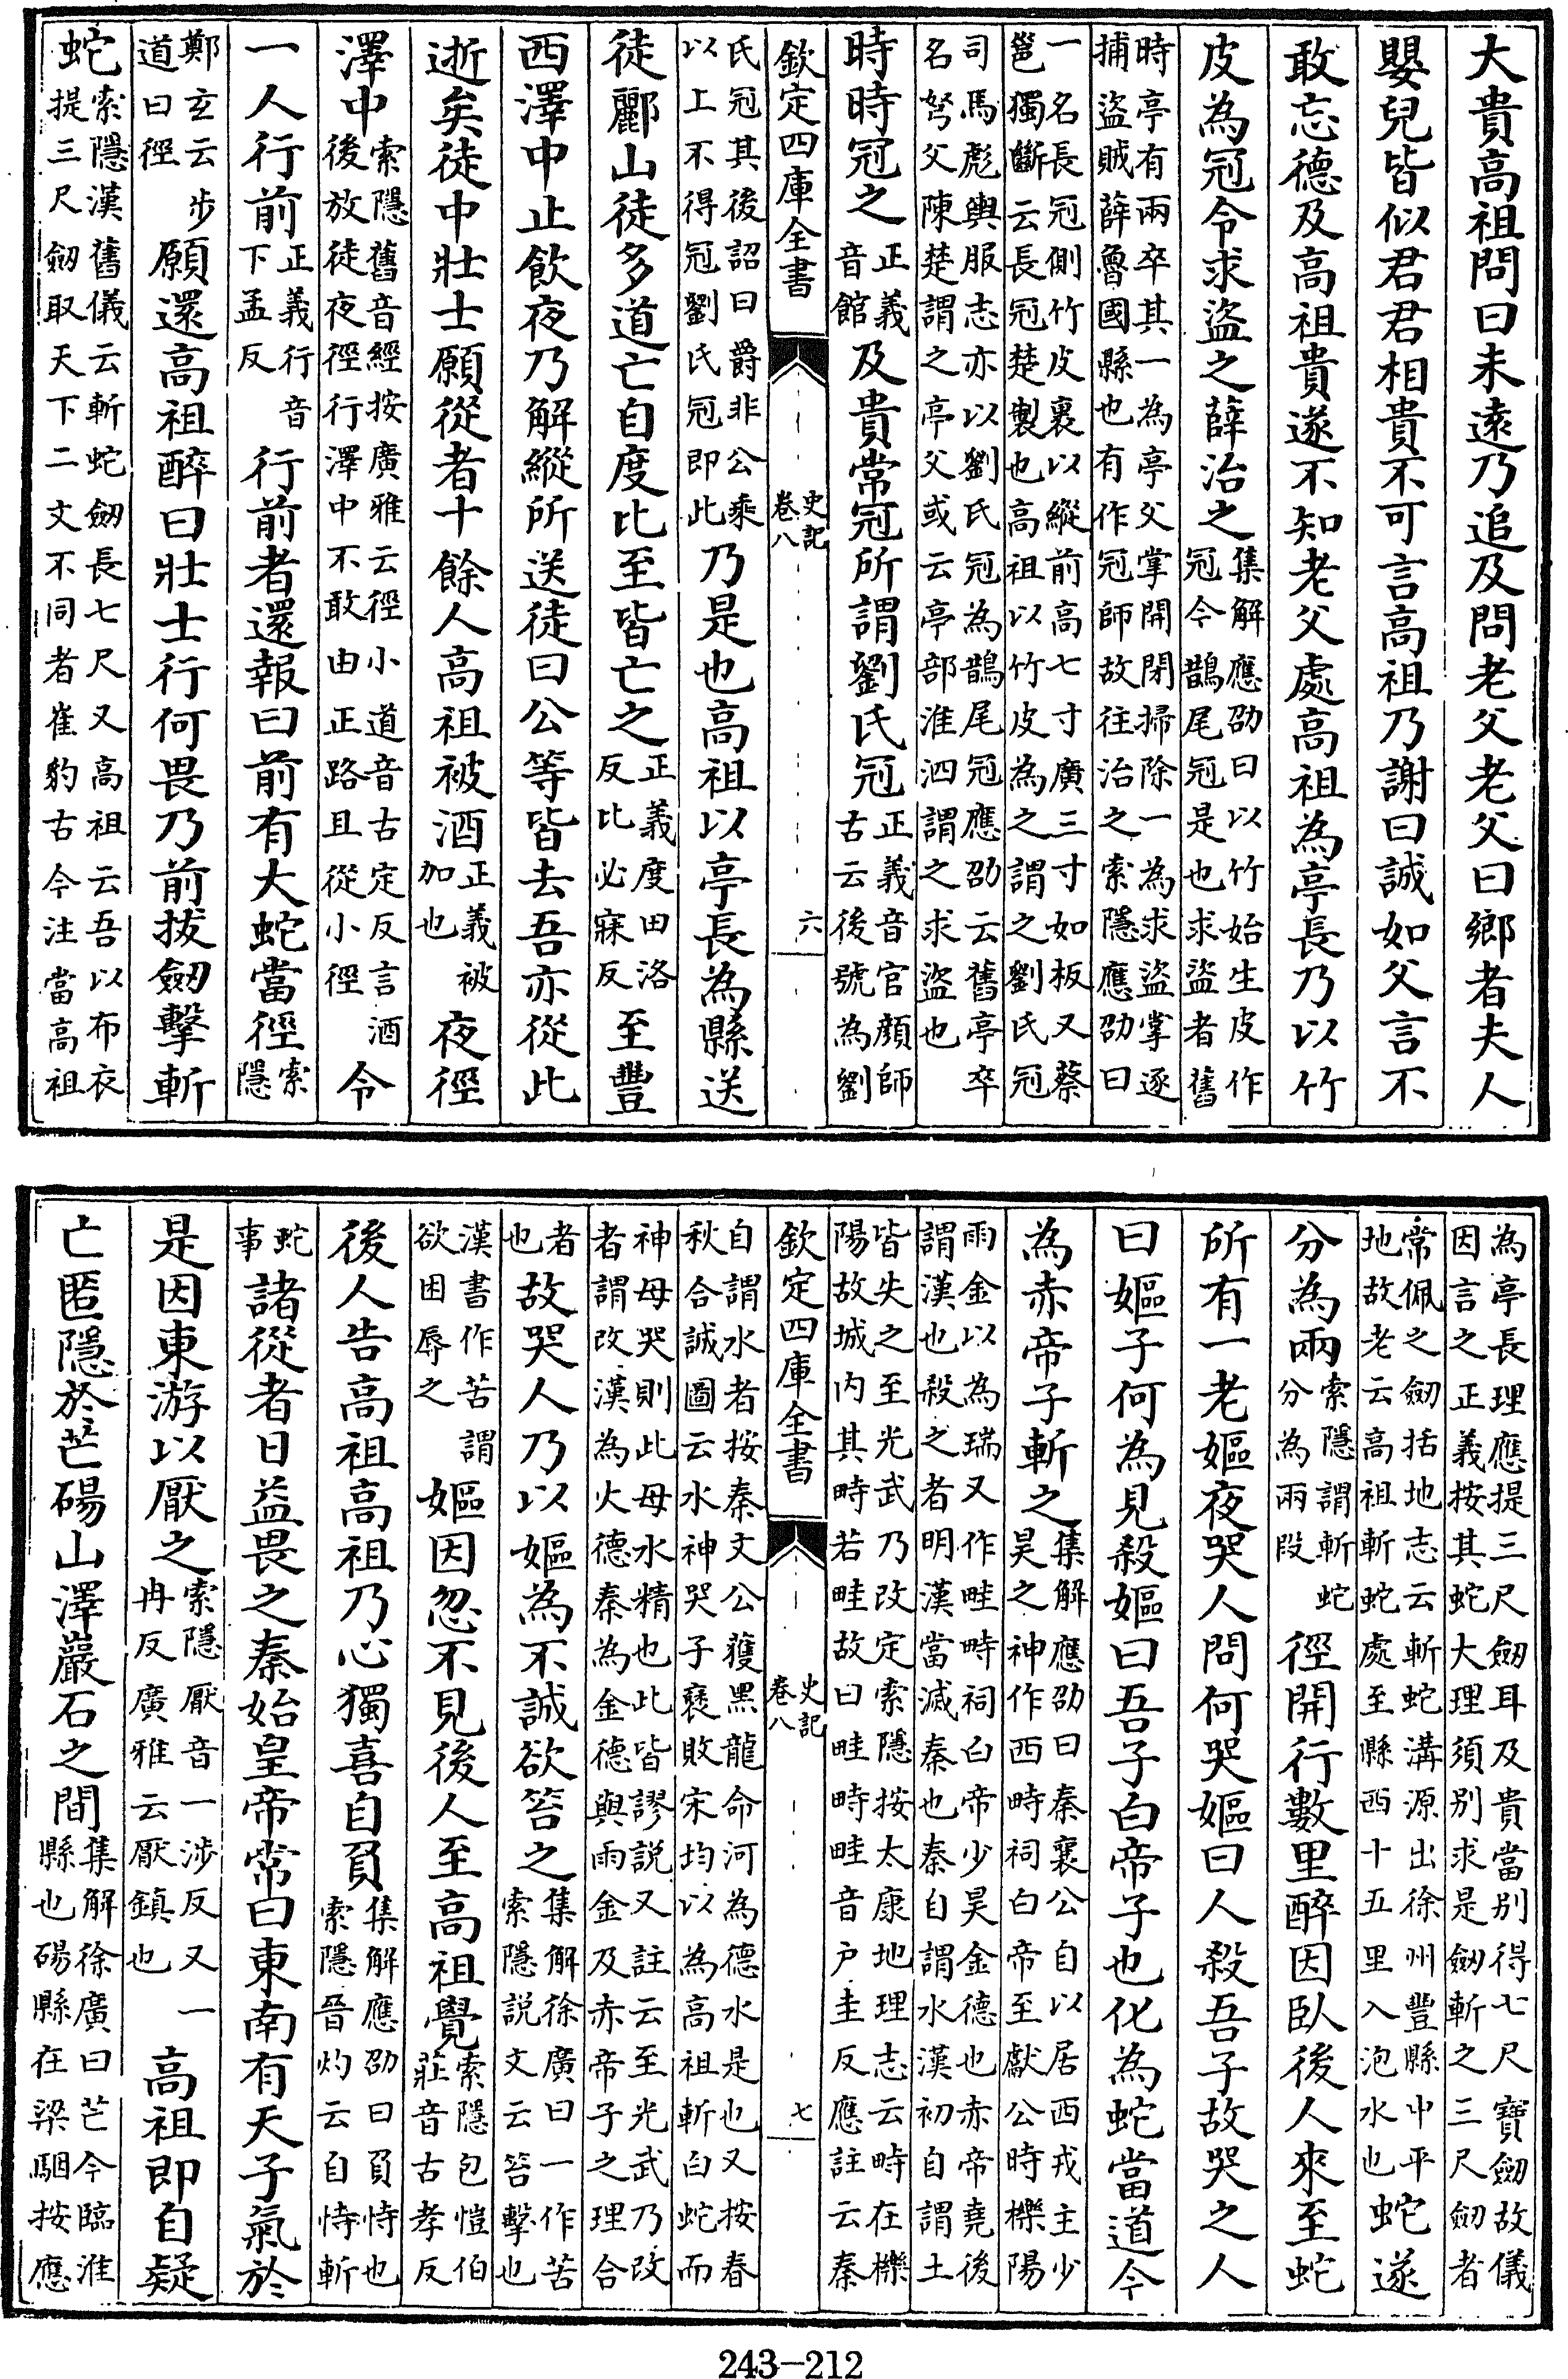 大貴高祖問曰未遠乃追及問老父老父曰鄉者夫人
嬰兒皆似君君相貴不可言高祖乃謝曰誠如父言不
敢忘德及高祖貴遂不知老父處高祖為亭長乃以竹
皮為冠令求盜之薛治之集解應劭曰以竹始生皮作冠今鵲尾冠是也求盜者舊
時亭有兩卒其一為亭父掌開閉掃除一為求盜掌逐捕盜賊薛魯國縣也有作冠師故往治之索隱應劭曰
一名長冠側竹皮裹以縱前高七寸廣三寸如板又蔡邕獨斷云長冠楚製也高祖以竹皮為之謂之劉氏冠
司馬彪輿服志亦以劉氏冠為鵲尾冠應劭云舊亭卒名弩父陳楚謂之亭父或云亭部淮泗謂之求盜也
時時冠之正義音館及貴常冠所謂劉氏冠正義音官顔師古云後號為劉
欽定四庫全書 史記卷八 六
氏冠其後詔曰爵非公乘以上不得冠劉氏冠即此乃是也高祖以亭長為縣送
徒酈山徒多道亡自度比至皆亡之正義度田洛反比必寐反至豐
西澤中止飲夜乃解縱所送徒曰公等皆去吾亦從此
逝矣徒中壯士願從者十餘人高祖被酒正義被加也夜徑
澤中索隱舊音經按廣雅云徑小道音古定反言酒後放徒夜徑行澤中不敢由正路且從小徑令
一人行前正義行音下孟反行前者還報曰前有大蛇當徑索隱
鄭玄云步道曰徑願還高祖醉曰壯士行何畏乃前拔劒擊斬
蛇索隱漢舊儀云斬蛇劒長七尺又高祖云吾以布衣提三尺劒取天下二文不同者崔豹古今注當高祖
為亭長理應提三尺劒耳及貴當別得七尺寶劒故儀因言之正義按其蛇大理須別求是劒斬之三尺劒者
常佩之劒括地志云斬蛇溝源出徐州豐縣中平地故老云高祖斬蛇處至縣西十五里入泡水也蛇遂
分為兩索隱謂斬蛇分為兩段徑開行數里醉因臥後人來至蛇
所有一老嫗夜哭人問何哭嫗曰人殺吾子故哭之人
曰嫗子何為見殺嫗曰吾子白帝子也化為蛇當道今
為赤帝子斬之集解應劭曰秦襄公自以居西戎主少昊之神作西畤祠白帝至獻公時櫟陽
雨金以為瑞又作畦畤祠白帝少昊金德也赤帝堯後謂漢也殺之者明漢當滅秦也秦自謂水漢初自謂土
皆失之至光武乃改定索隱按太康地理志云畤在櫟陽故城内其畤若畦故曰畦畤畦音户圭反應註云秦
欽定四庫全書 史記卷八 七
自謂水者按秦文公獲黑龍命河為德水是也又按春秋合誠圖云水神哭子襃敗宋均以為高祖斬白蛇而
神母哭則此母水精也此皆謬説又註云至光武乃改者謂改漢為火德秦為金德與雨金及赤帝子之理合
者也故哭人乃以嫗為不誠欲笞之集解徐廣曰一作苦索隱説文云笞擊也
漢書作苦謂欲困辱之嫗因忽不見後人至高祖覺索隱包愷伯莊音古孝反
後人告高祖高祖乃心獨喜自負集解應劭曰負恃也索隱晉灼云自恃斬
蛇事諸從者日益畏之秦始皇帝常曰東南有天子氣於
是因東游以厭之索隱厭音一涉反又一冉反廣雅云厭鎮也高祖即自疑
亡匿隱於芒碭山澤巖石之間集解徐廣曰芒今臨淮縣也碭縣在梁駰按應
243-212